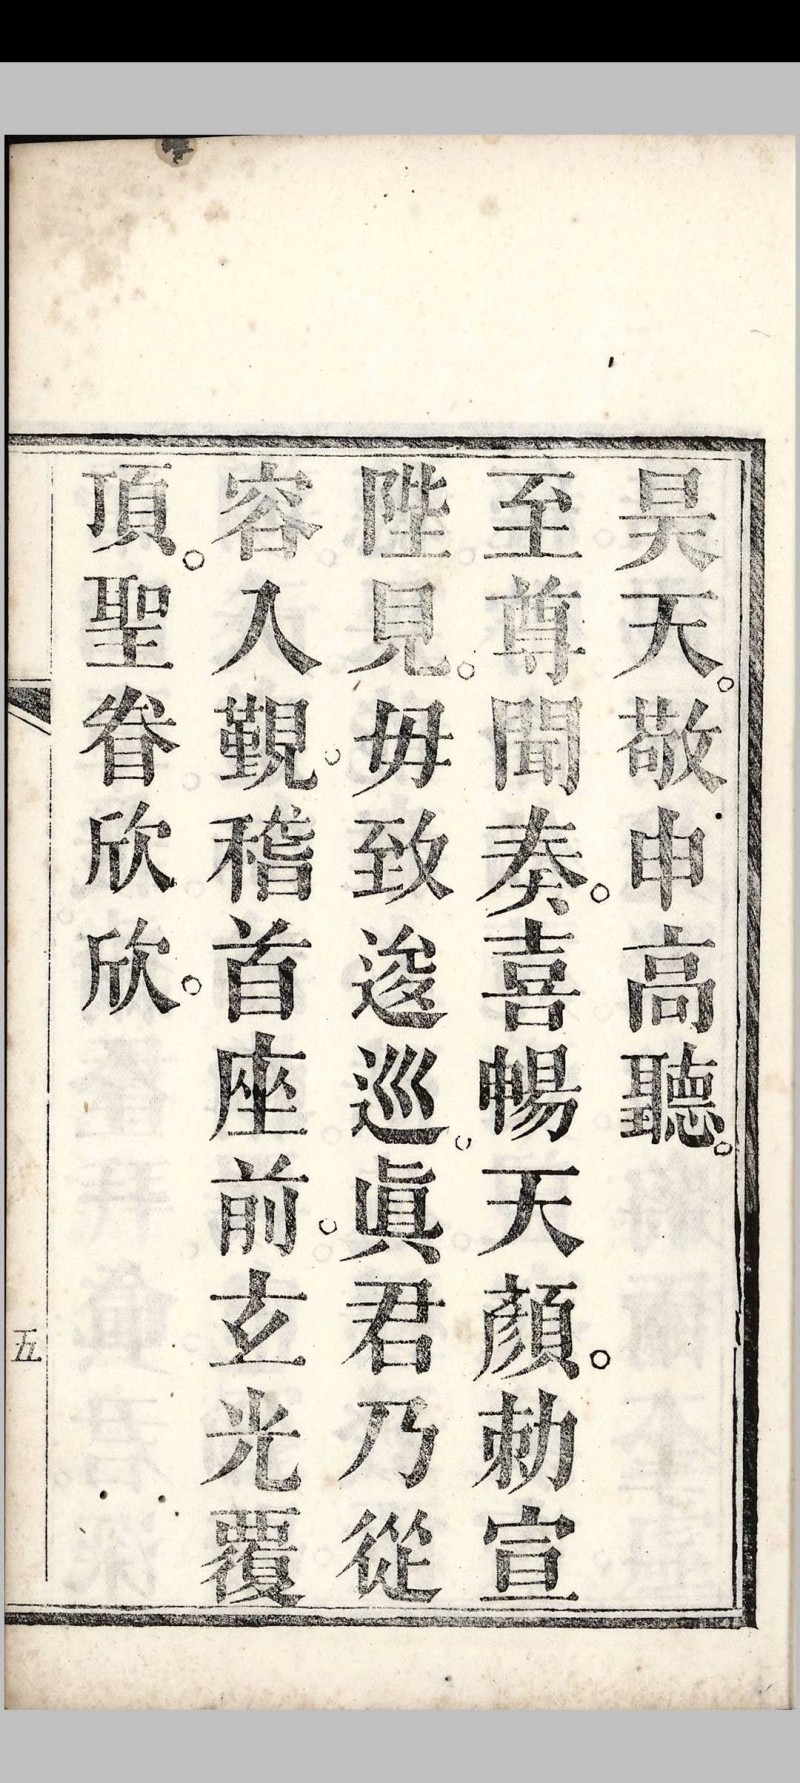 昊天。敬申高聽。
至尊聞奏。喜暢天顏。勅宣
陛見。毋致逡巡。眞君乃從
容入覲。稽首座前。玄光覆
頂。聖眷欣欣。
五